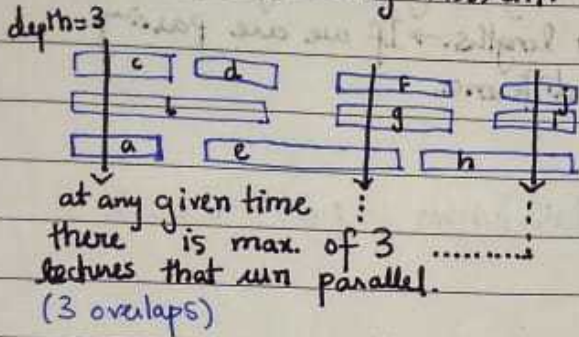 depth=3
c d f j
b g i
a e h
at any given time
there is max. of 3 ..........
lectures that run parallel.
(3 overlaps)